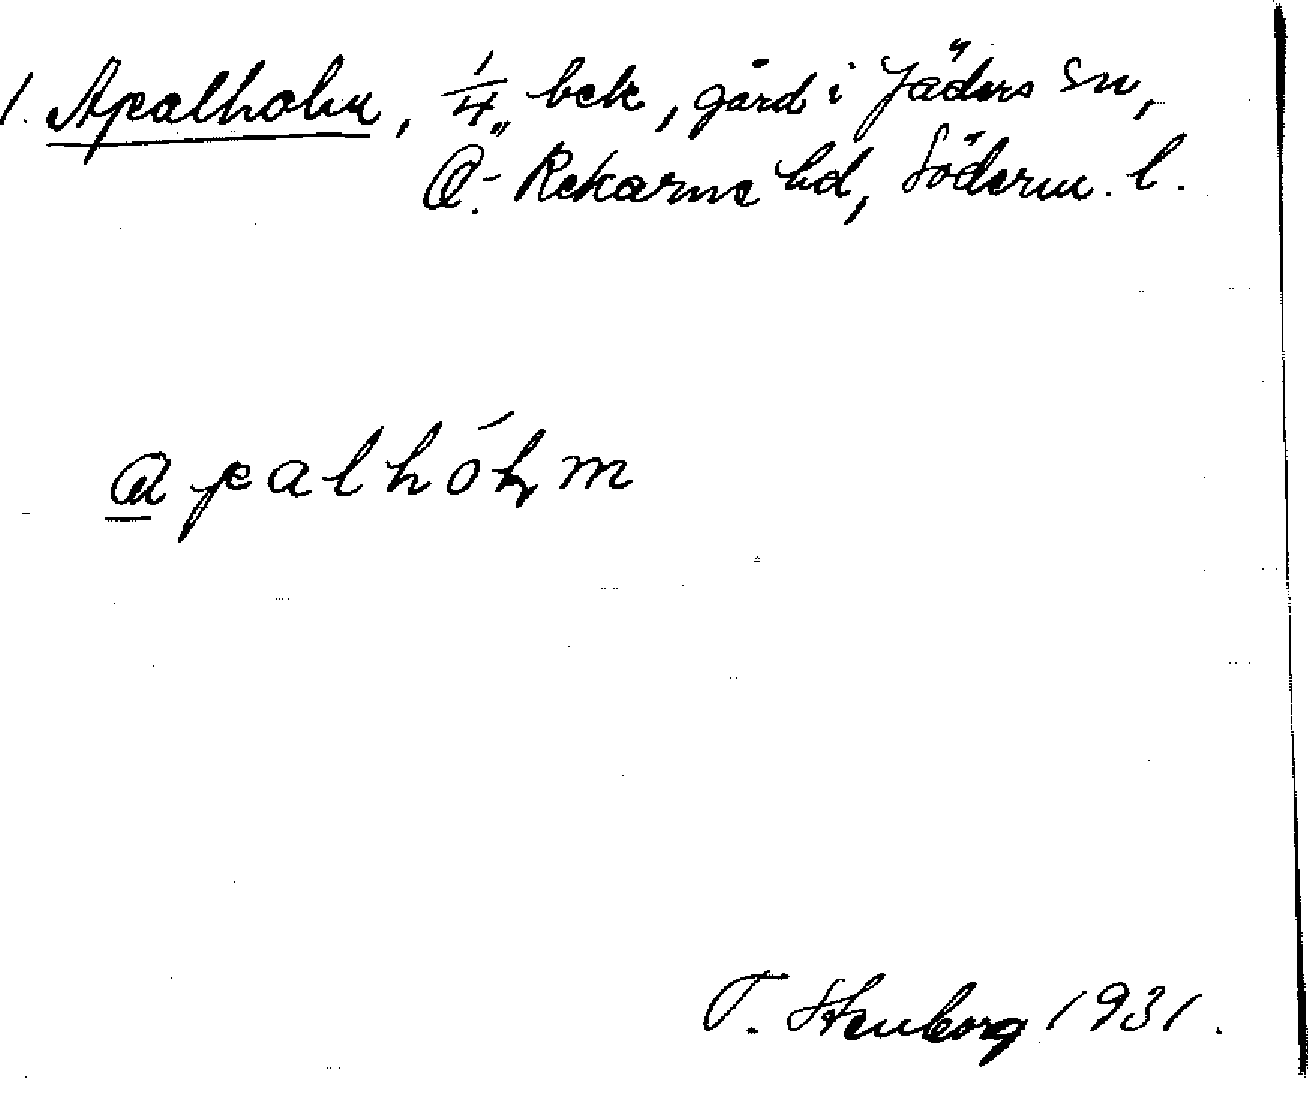 1. Apalholm, 1/4 bek, gård i Jäders sn,
Ö.- Rekarne hd, Söderm. l.
apalhólm
T. Stenborg 1931.